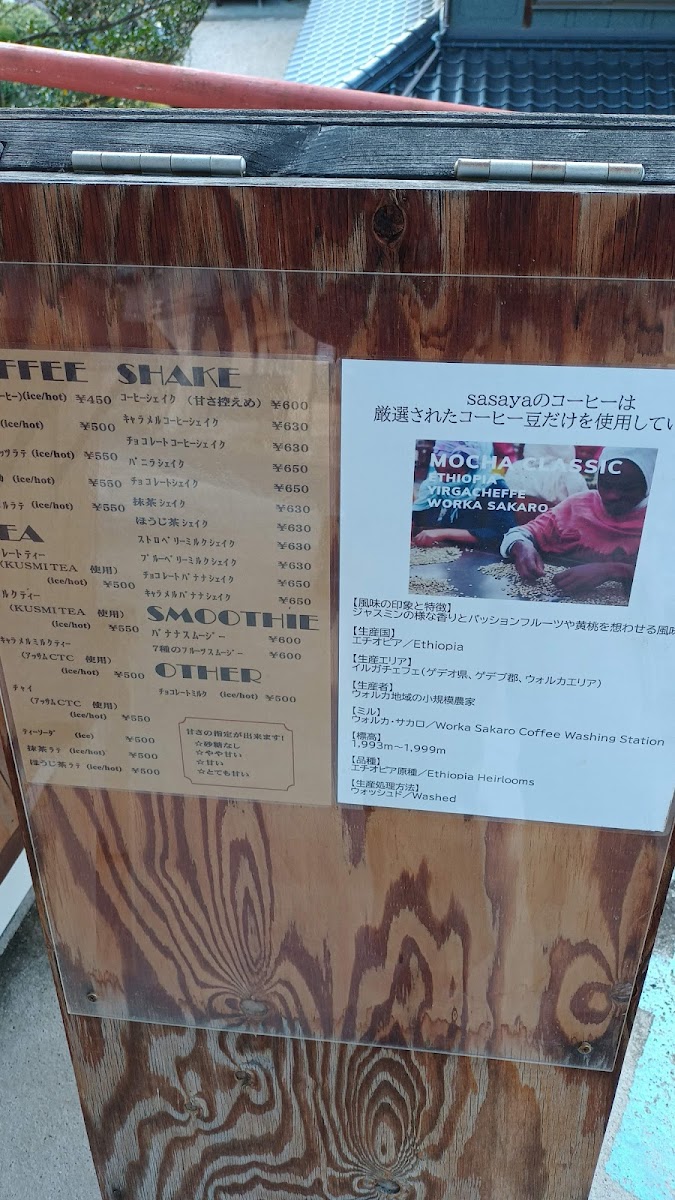 FFEE
ーヒー)(ice/hot) ¥450
(ice/hot) ¥500
ッツラテ (ice/hot) ¥550
カ (ice/hot) ¥550
ルラテ (ice/hot) ¥550
EA
レートティー
(KUSMI TEA 使用)
(ice/hot) ¥500
ルクティー
(KUSMI TEA 使用)
(ice/hot) ¥550
キャラメルミルクティー
(アッサムCTC 使用)
(ice/hot) ¥500
チャイ
(アッサムCTC 使用)
(ice/hot) ¥550
ティーソーダ (ice) ¥500
抹茶ラテ (ice/hot) ¥500
ほうじ茶ラテ (ice/hot) ¥500
SHAKE
コーヒーシェイク (甘さ控えめ) ¥600
キャラメルコーヒーシェイク ¥630
チョコレートコーヒーシェイク ¥630
バニラシェイク ¥650
チョコレートシェイク ¥650
抹茶シェイク ¥630
ほうじ茶シェイク ¥630
ストロベリーミルクシェイク ¥630
ブルーベリーミルクシェイク ¥630
チョコレートバナナシェイク ¥650
キャラメルバナナシェイク ¥650
SMOOTHIE
バナナスムージー ¥600
7種のフルーツスムージー ¥600
OTHER
チョコレートミルク (ice/hot) ¥500
甘さの指定が出来ます!
☆砂糖なし
☆やや甘い
☆甘い
☆とても甘い
sasayaのコーヒーは
厳選されたコーヒー豆だけを使用してい
MOCHA CLASSIC
ETHIOPIA
YIRGACHEFFE
WORKA SAKARO
【風味の印象と特徴】
ジャスミンの様な香りとパッションフルーツや黄桃を想わせる風味
【生産国】
エチオピア/Ethiopia
【生産エリア】
イルガチェフェ(ゲデオ県、ゲデブ郡、ウォルカエリア)
【生産者】
ウォルカ地域の小規模農家
【ミル】
ウォルカ・サカロ/Worka Sakaro Coffee Washing Station
【標高】
1,993m～1,999m
【品種】
エチオピア原種/Ethiopia Heirlooms
【生産処理方法】
ウォッシュド/Washed